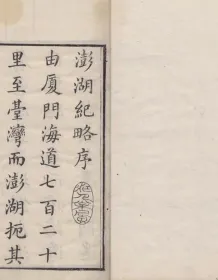 澎湖紀略序
由厦門海道七百二十
里至臺灣而澎湖扼其